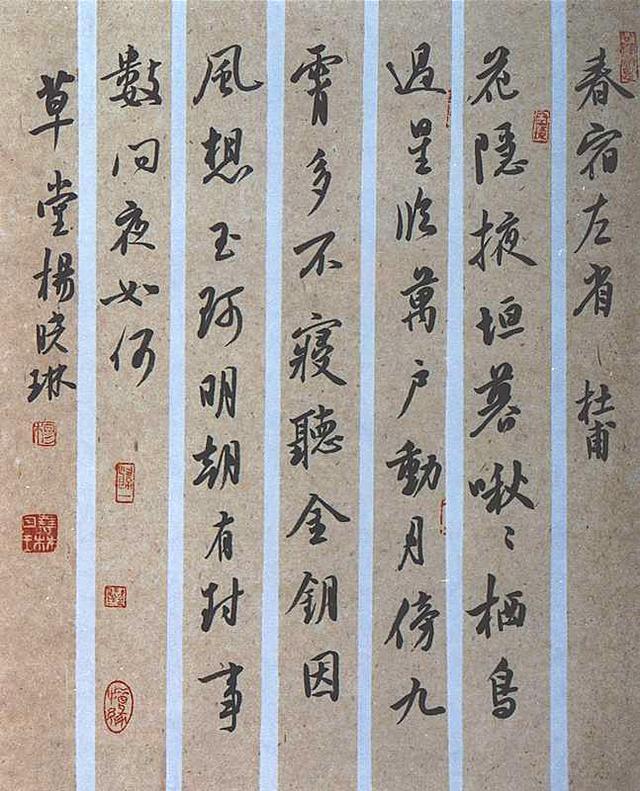 春宿左省 杜甫
花隱掖垣暮啾〻栖鳥
過星臨萬户動月傍九
霄多不寢聽金鈅因
風想玉珂明朝有封事
數問夜如何
草堂楊晓琳